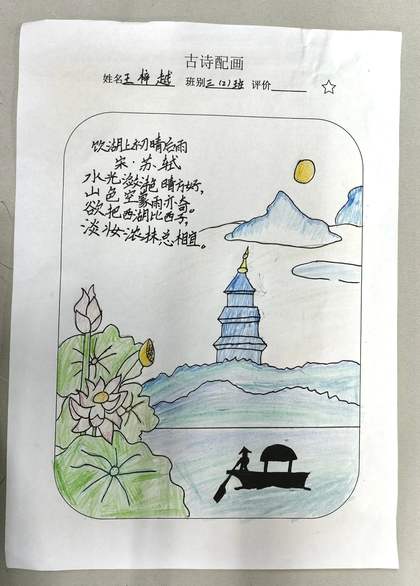 古诗配画
姓名王梓越 班别三(2)班 评价
饮湖上初晴后雨
宋·苏轼
水光潋滟晴方好,
山色空蒙雨亦奇。
欲把西湖比西子,
淡妆浓抹总相宜。